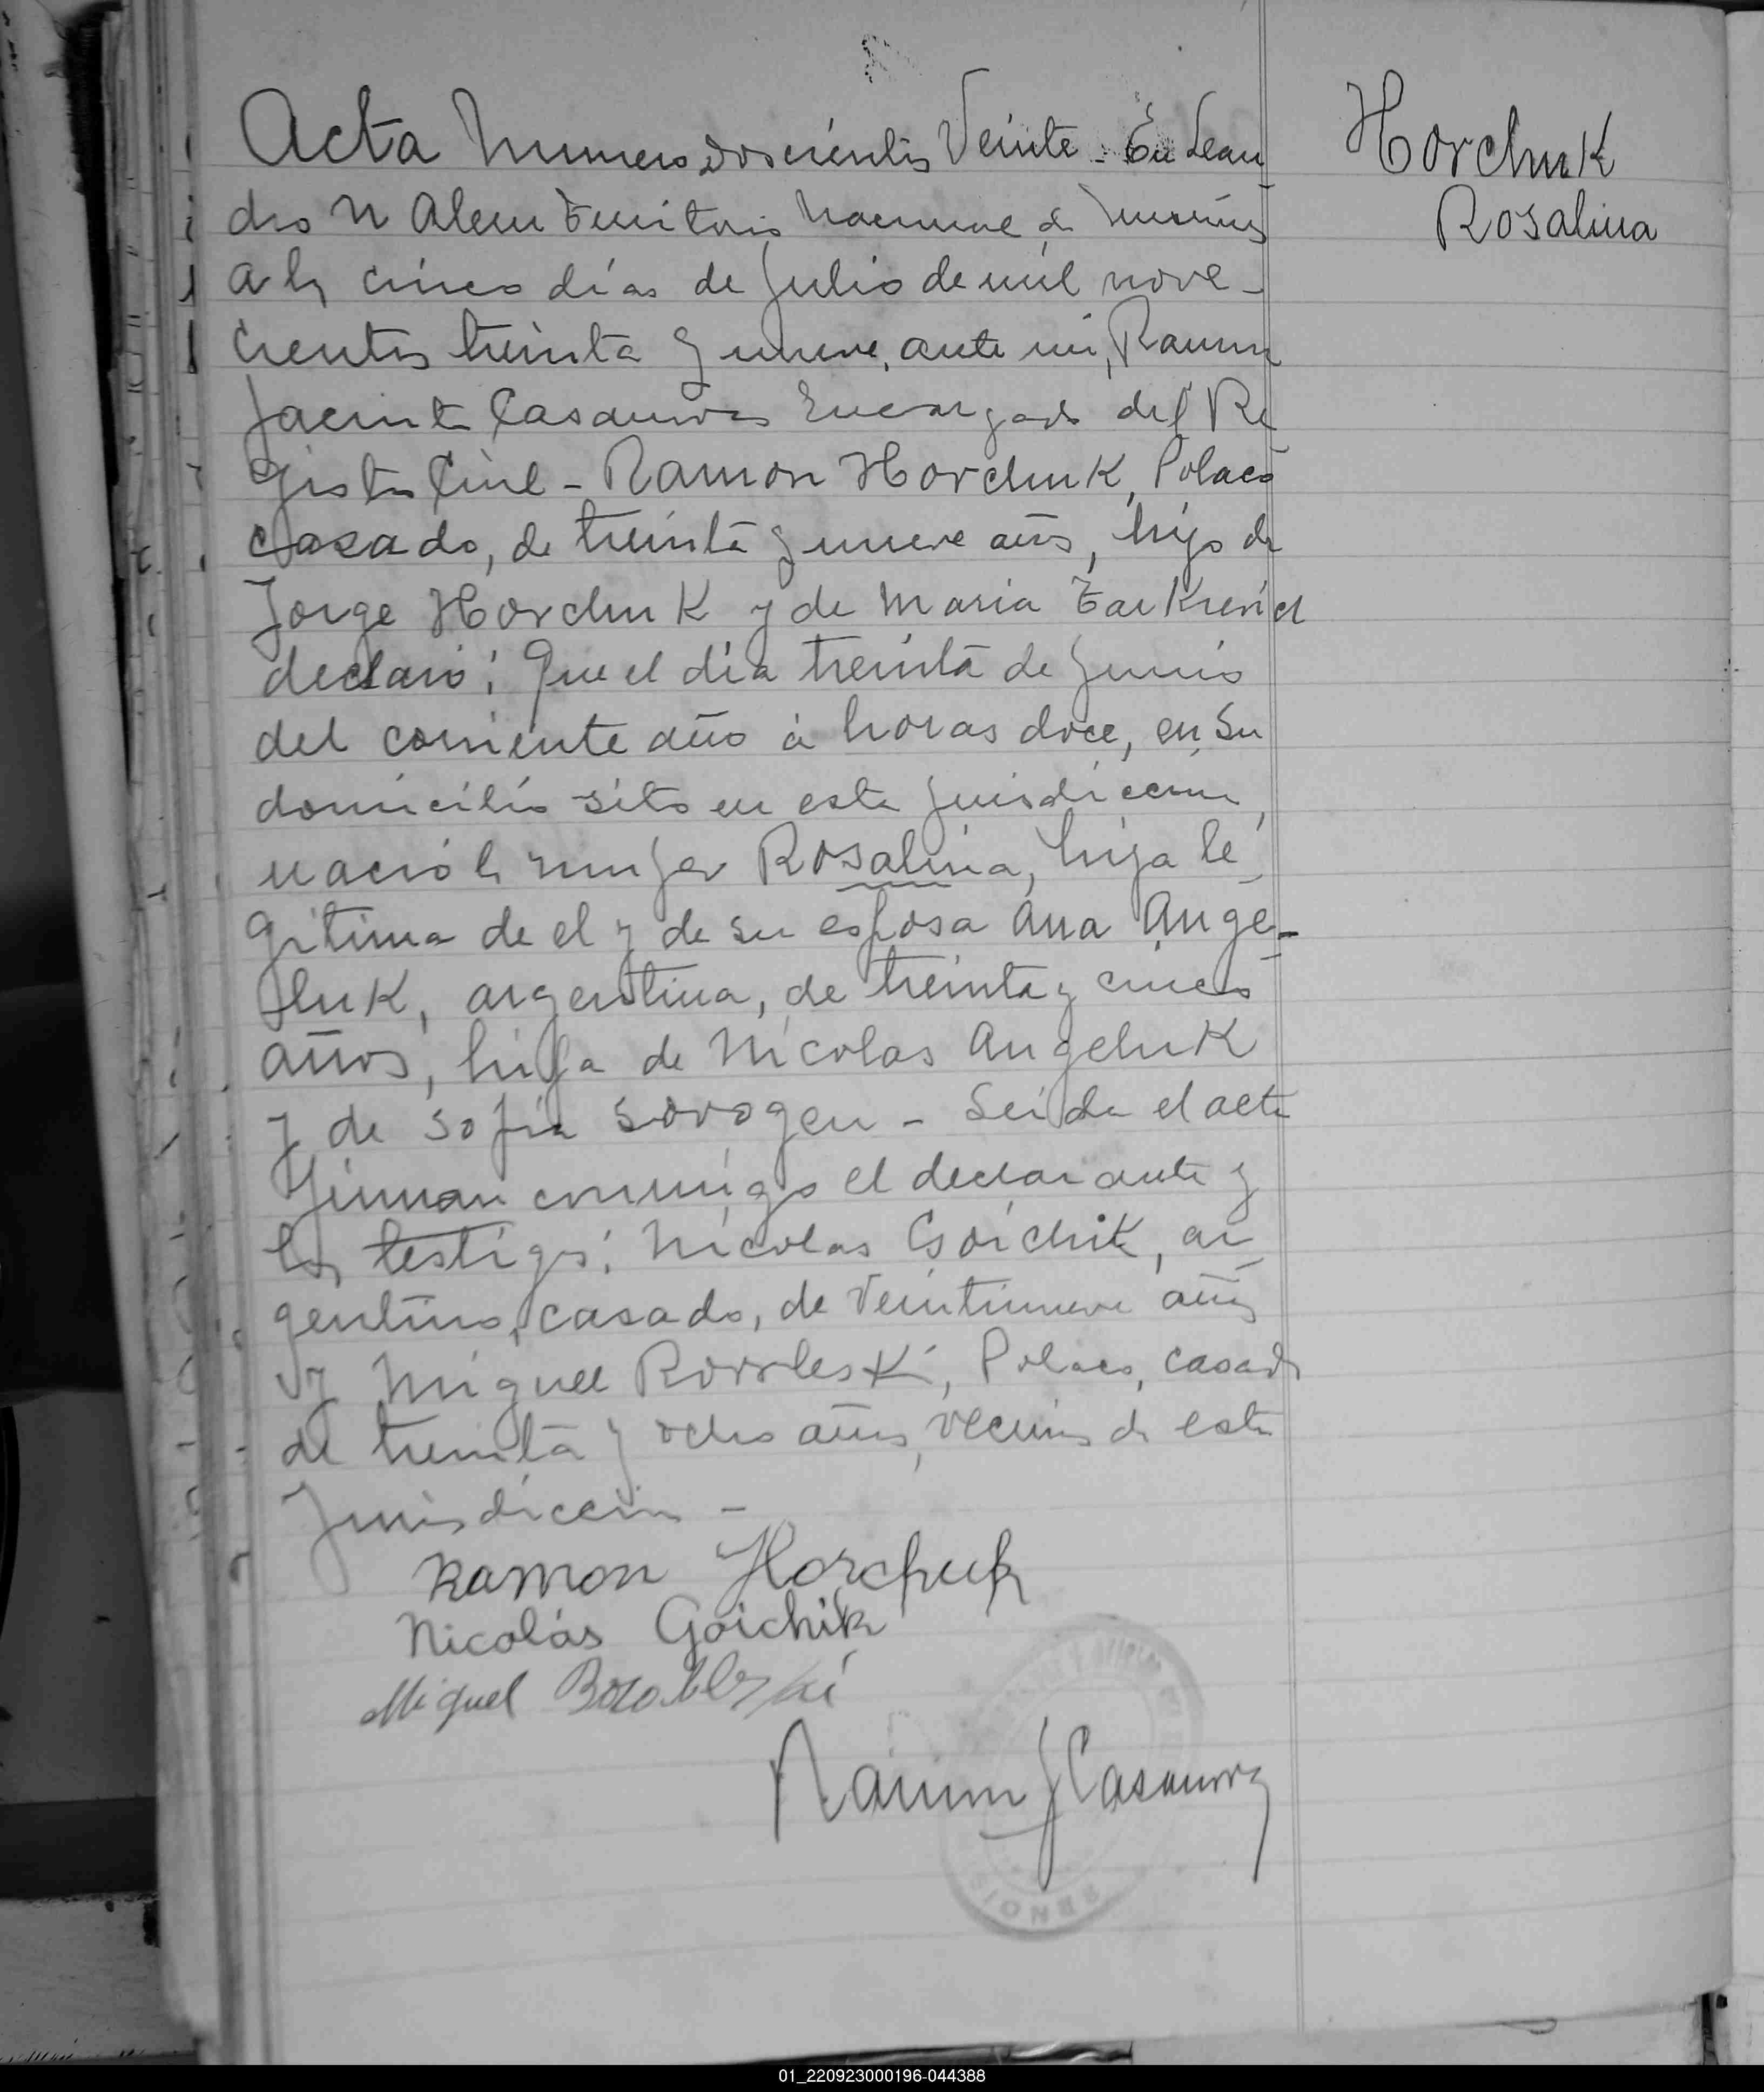 Acta Numero doscientos Veinte - En Lean
Horchuk
Rosalina
dro N Alem Territorio Nacional de Misiones
a los cinco días de Julio de mil nove-
cientos treinta y nueve, ante mi, Ramon
Jacinto Casanova Encargado del Re
gistro Civil - Ramon Horchuk, Polaco
casado, de treinta y nueve años, hijo de
Jorge Horchuk y de Maria
declaró: Que el día treinta de Junio
del corriente año á horas doce, en su
domicilio sito en esta jurisdiccion,
nació la mujer Rosalina, hija le
gitima de el y de su esposa Ana Ange-
luk, argentina, de treinta y cinco
años, hija de Nicolas Angeluk
y de Sofia Sorogen - Leida el acta
firman conmigo el declarante y
los testigos: Nicolas Goichik, ar
gentino, casado, de veintinueve años
y Miguel Polaco, casado
de treinta y ocho años, vecinos de esta
Jurisdiccion -
Ramon Horchuk
Nicolás Goichik
Miguel
Ramon J Casanova
01_220923000196-044388